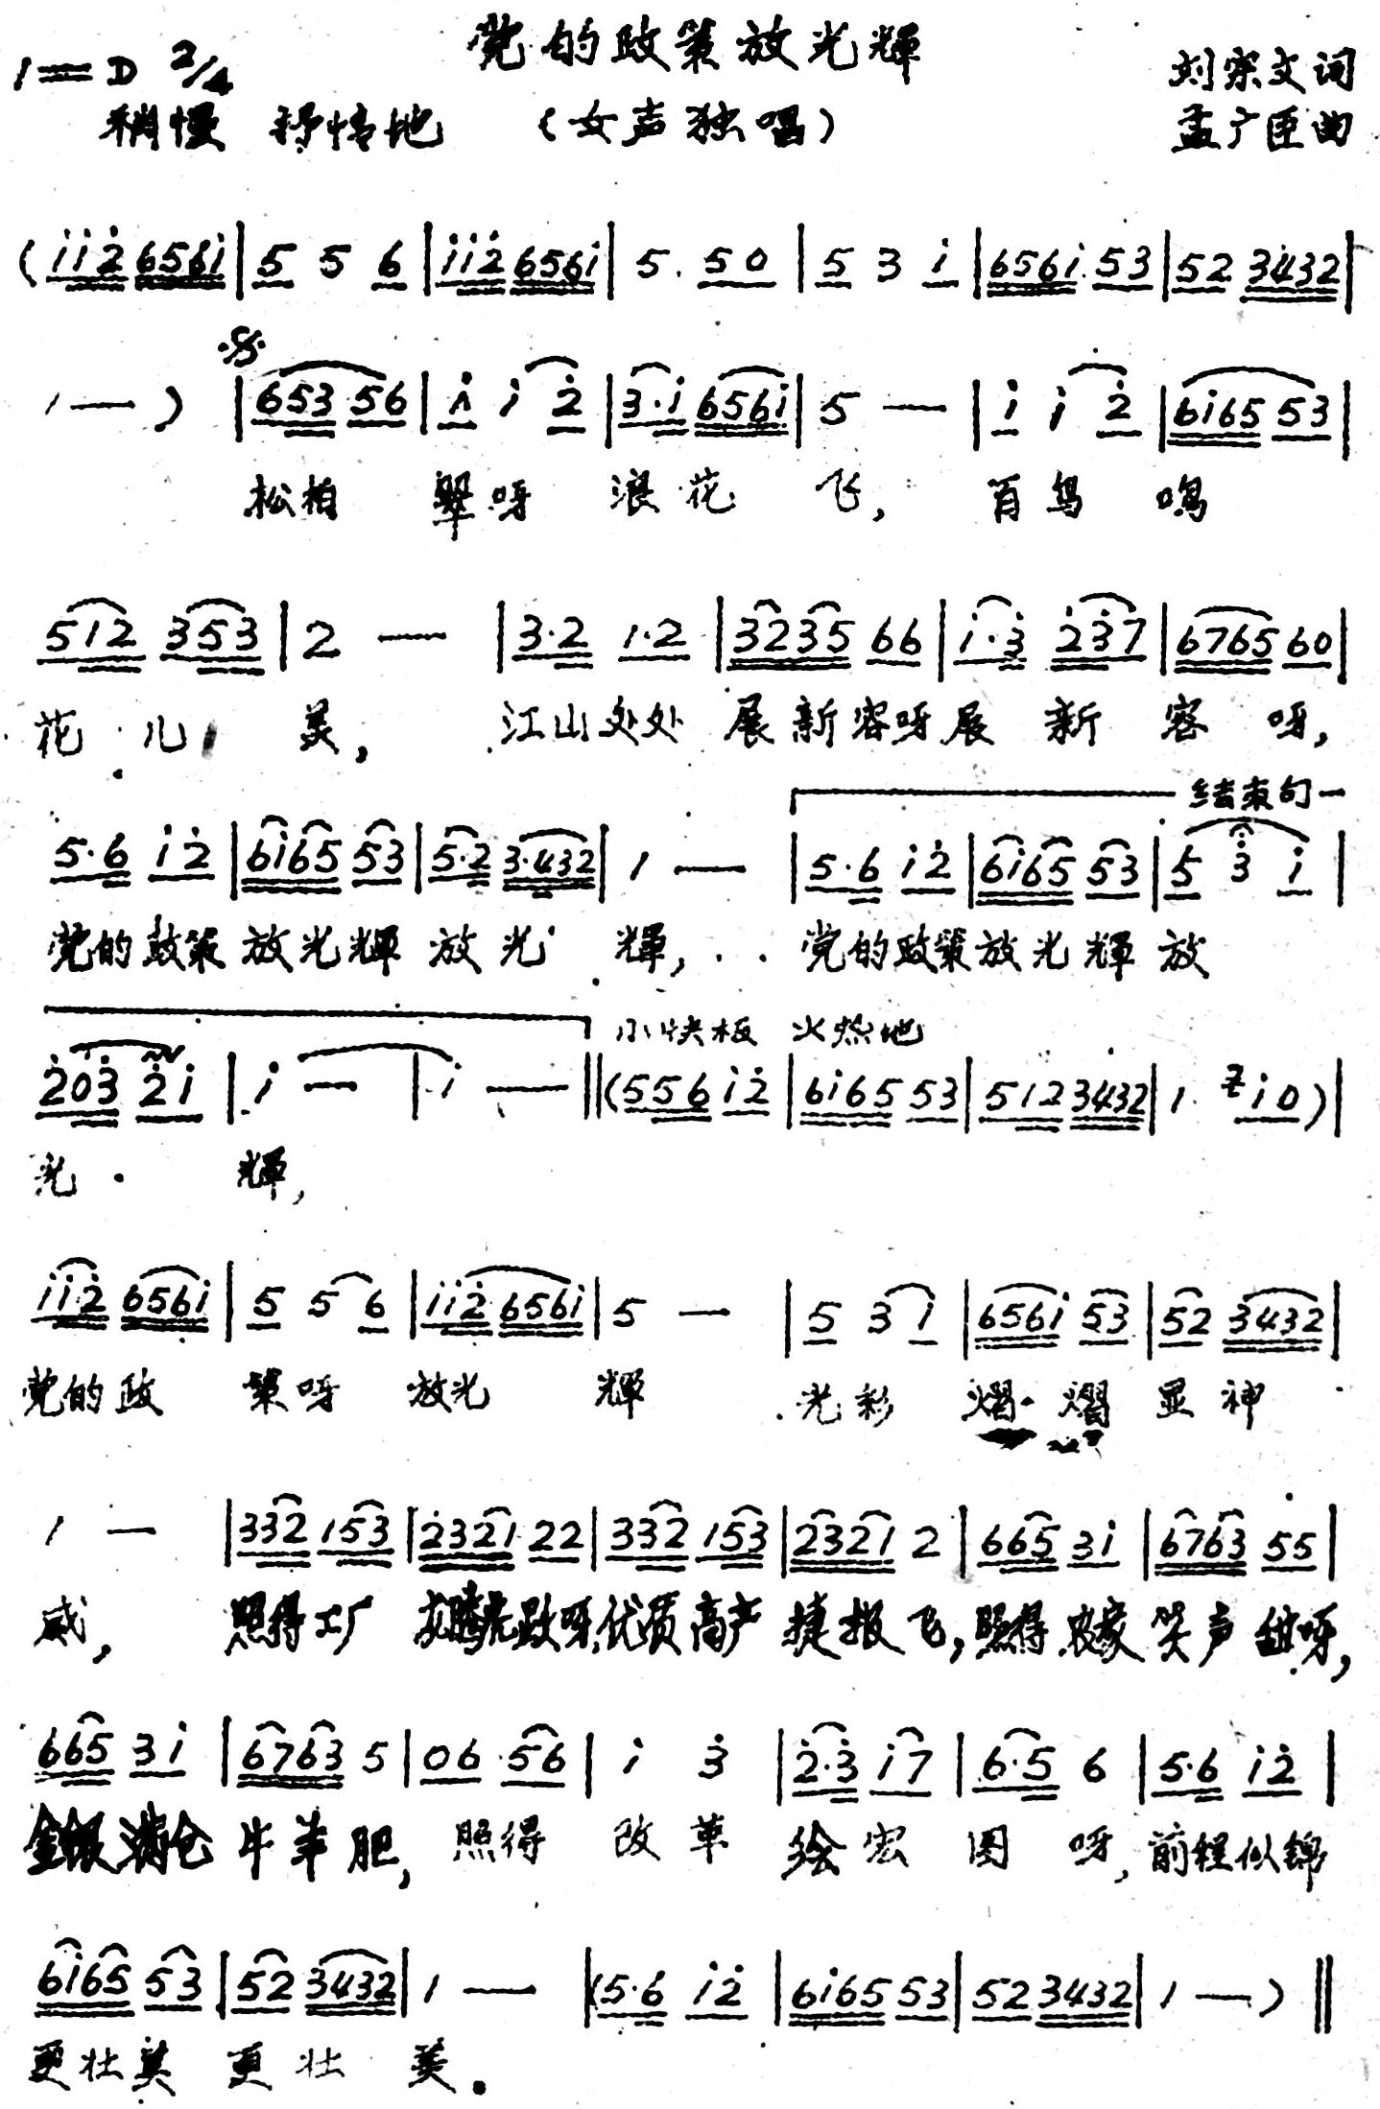 党的政策放光辉
1=D 2/4
刘宗文词
稍慢 抒情地 (女声独唱)
孟广臣曲
(i i 2̇ 6 5 6 i | 5 5 6 | i i 2̇ 6 5 6 i | 5 . 5 0 | 5 3 i | 6 5 6 i 5 3 | 5 2 3 4 3 2 |
1 — ) | 6 5 3 5 6 | i i 2̇ | 3 · i 6 5 6 i | 5 — | i i 2̇ | 6 i 6 5 5 3 |
松柏 翠呀 浪花 飞, 百鸟 鸣
5 1 2 3 5 3 | 2 — | 3 · 2 1 · 2 | 3 2 3 5 6 6 | i · 3̇ 2̇ 3̇ 7 | 6 7 6 5 6 0 |
花 儿 美, 江山处处 展新容呀展 新 容 呀,
结束句
5 · 6 i 2̇ | 6 i 6 5 5 3 | 5 · 2 3 · 4 3 2 | 1 — | 5 · 6 i 2̇ | 6 i 6 5 5 3 | 5 3̇ i |
党的政策 放光辉 放 光 辉, 党的政策放光辉 放
小快板 火热地
2̇ 0 3̇ 2̇ i | i — | i — ‖ (5 5 6 i 2̇ | 6 i 6 5 5 3 | 5 1 2 3 4 3 2 | 1 . i 0 ) |
光 辉,
i i 2̇ 6 5 6 i | 5 5 6 | i i 2̇ 6 5 6 i | 5 — | 5 3 i | 6 5 6 i 5 3 | 5 2 3 4 3 2 |
党的政 策呀 放光 辉 光彩 熠熠 显神
1 — | 3 3 2 1 5 3 | 2 3 2 1 2 2 | 3 3 2 1 5 3 | 2 3 2 1 2 | 6 6 5 3 i | 6 7 6 3 5 5 |
威, 照得工厂 龙腾虎跃呀,优质高产 捷报飞,照得农家 笑声甜呀,
6 6 5 3 i | 6 7 6 3 5 | 0 6 5 6 | i 3̇ | 2̇ · 3̇ i 7 | 6 · 5 6 | 5 · 6 i 2̇ |
金银满仓 牛羊肥, 照得 改革 绘宏 图 呀, 前程似锦
6 i 6 5 5 3 | 5 2 3 4 3 2 | 1 — | (5 · 6 i 2̇ | 6 i 6 5 5 3 | 5 2 3 4 3 2 | 1 — ) ‖
更壮美 更 壮 美。